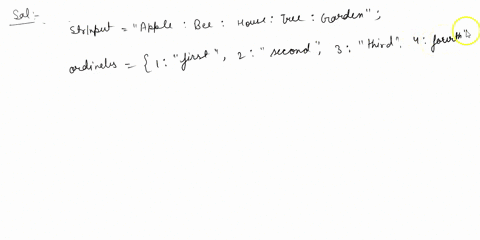 Sol:-
StrInput = "Apple : Bee : House : Tree : Garden" ;
ordineles = { 1 : "first" , 2 : "second" , 3 : "third" . 4 : fourth"